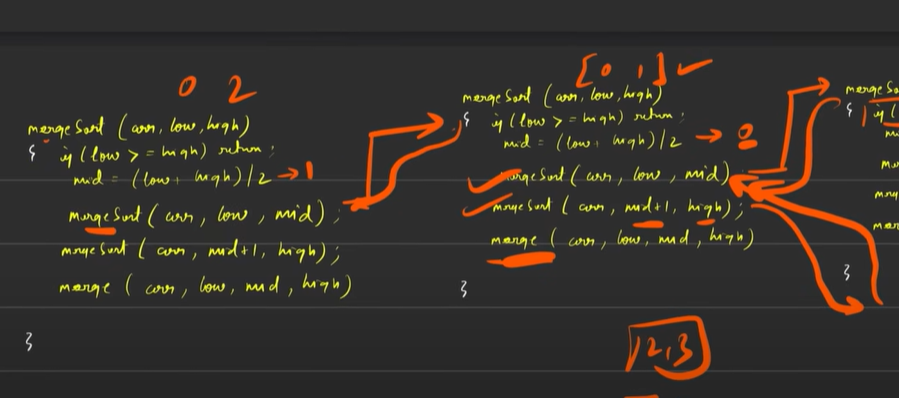 0 2
mergeSort (arr, low, high)
{ if (low >= high) return;
mid = (low + high)/2 → 1
mergeSort (arr, low, mid);
mergeSort (arr, mid+1, high);
merge (arr, low, mid, high)
}
[0 1] ✓
mergeSort (arr, low, high)
{ if (low >= high) return;
mid = (low + high)/2 → 0
mergeSort (arr, low, mid)
mergeSort (arr, mid+1, high);
merge (arr, low, mid, high)
}
mergeSo
{ if (
}